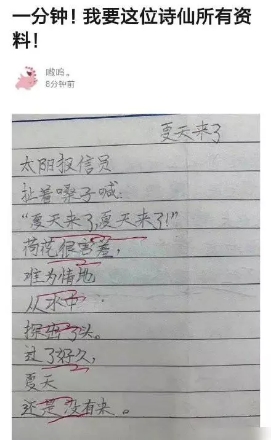 一分钟！我要这位诗仙所有资
料！
嗷呜。
8分钟前
夏天来了
太阳报信员
扯着嗓子喊:
“夏天来了,夏天来了!”
荷花很害羞,
难为情地
从水中
探出了头。
过了好久,
夏天
还是没有来。